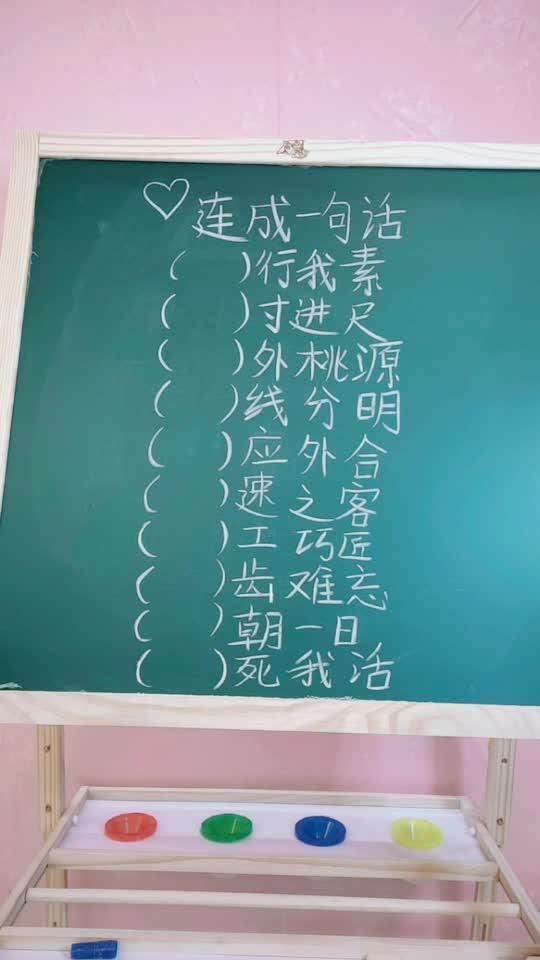 ♡连成一句话
( )行我素
( )寸进尺
( )外桃源
( )线分明
( )应外合
( )速之客
( )工巧匠
( )齿难忘
( )朝一日
( )死我活